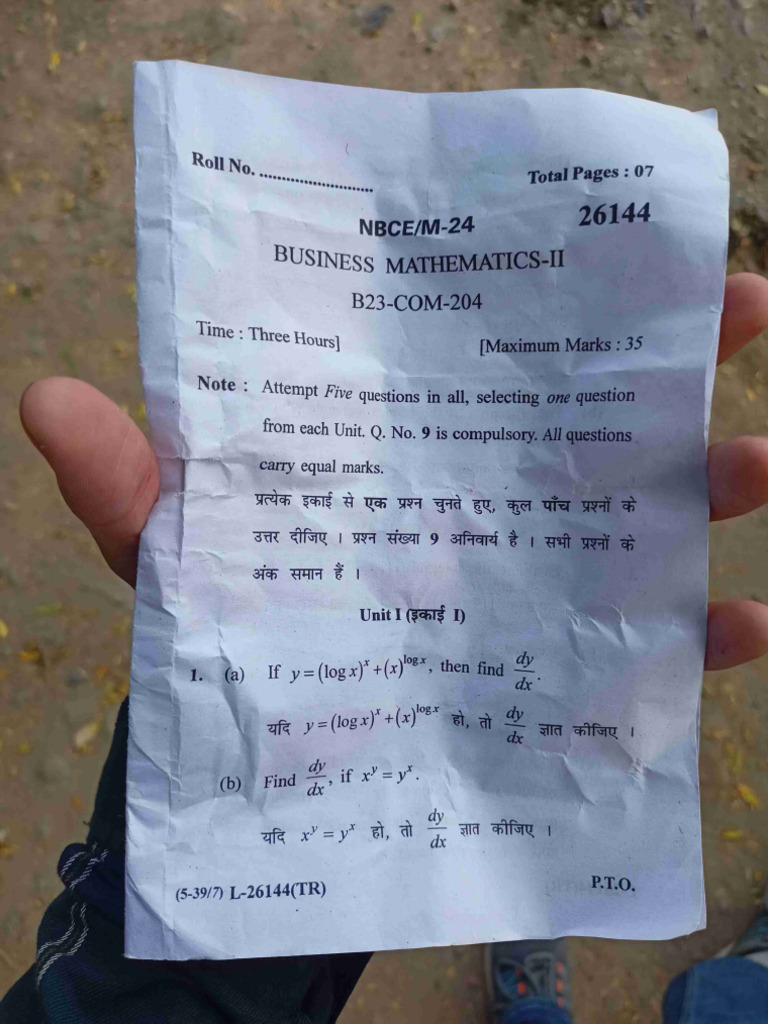 Roll No. ..........................
Total Pages : 07
NBCE/M-24
26144
BUSINESS MATHEMATICS-II
B23-COM-204
Time : Three Hours]
[Maximum Marks : 35
Note : Attempt Five questions in all, selecting one question
from each Unit. Q. No. 9 is compulsory. All questions
carry equal marks.
प्रत्येक इकाई से एक प्रश्न चुनते हुए, कुल पाँच प्रश्नों के
उत्तर दीजिए । प्रश्न संख्या 9 अनिवार्य है । सभी प्रश्नों के
अंक समान हैं ।
Unit I (इकाई I)
1. (a) If y = (log x)^x + (x)^{log x}, then find dy/dx.
यदि y = (log x)^x + (x)^{log x} हो, तो dy/dx ज्ञात कीजिए ।
(b) Find dy/dx, if x^y = y^x.
यदि x^y = y^x हो, तो dy/dx ज्ञात कीजिए ।
(5-39/7) L-26144(TR)
P.T.O.